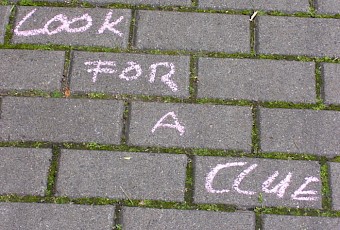 LOOK
FOR
A
CLUE